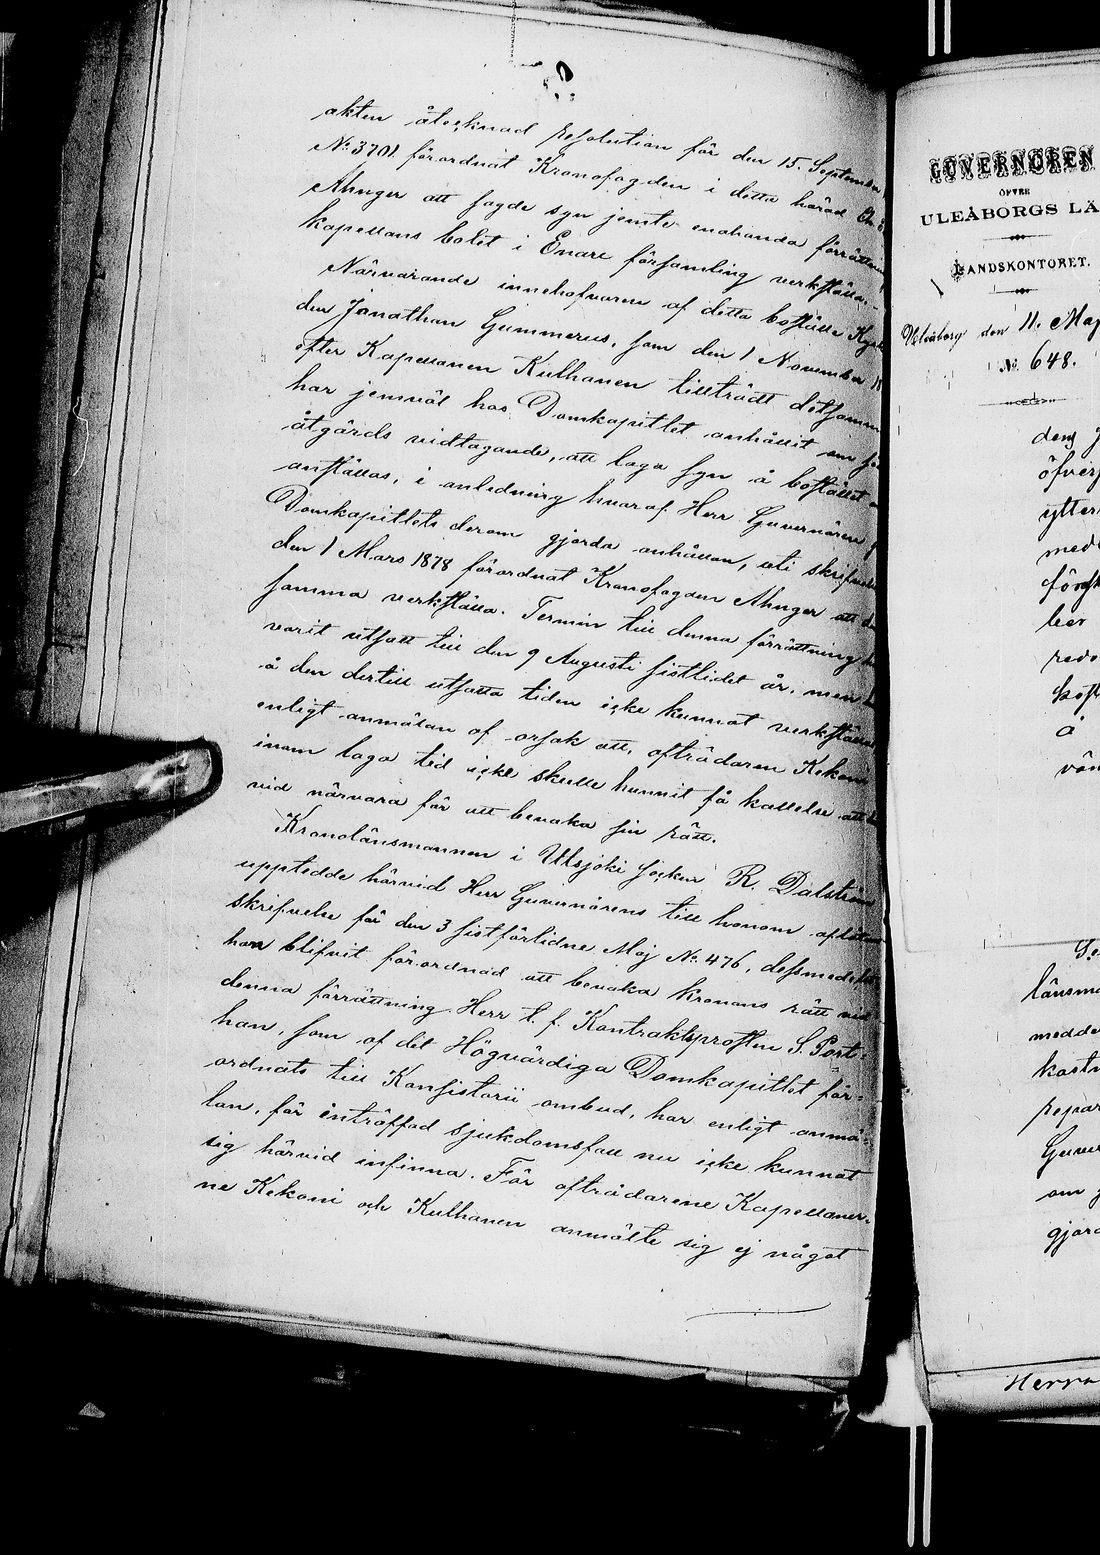 akten åtecknad resolution för den 15 September
No 3701 förordnat Kronofogden i detta härad
Ahnger att sagde syn jemte enahanda förrättning
kapellans bolet i Enare församling verkställa.
Närvarande innehafvaren af detta boställe
den Jonathan Gummerus, som den 1 November 18
efter Kapellanen Kulhanen tillträdt detsamma
har jemväl hos Domkapitlet anhållit om
åtgärds vidtagande, att laga syn å bostället
anställas, i anledning hvaraf Herr Guvernören
Domkapitlets derom gjorda anhållan, uti skrifvelse
den 1 Mars 1878 förordnat Kronofogden Ahnger att
samma verkställa. Termin till denna förrättning
varit utsatt till den 9 Augusti sistlidet år, men
å den dertill utsatta tiden icke kunnat verkställas
enligt anmälan af orsak att, afträdaren Kekoni
inom laga tid icke skulle hunnit få kallelse att
vid närvara för att bevaka sin rätt.
Kronolänsmannen i Utsjoki socken R. Dalström
upptedde härvid Herr Guvernörens till honom aflåtna
skrifvelse för den 3 sistförlidne Maj No 476, dessmedelst
han blifvit förordnad att bevaka kronans rätt vid
denna förrättning. Herr t. f. Kontraktsprosten S. Port-
han, som af det Högvärdiga Domkapitlet för-
ordnats till Konsistorii ombud, har enligt anmä-
lan, för inträffad sjukdomsfall nu icke kunnat
sig härvid infinna. För afträdarene Kapellaner-
ne Kekoni och Kulhanen anmälte sig ej något
GUVERNÖREN
ÖFVER
ULEÅBORGS LÄ
LANDSKONTORET.
Uleåborg den 11. Maj
No 648.
dens
öfver
ytter
med
förs
ber
redo
kost
å
vän
länsma
medde
kostn
repar
Guver
om
gjord
Herra